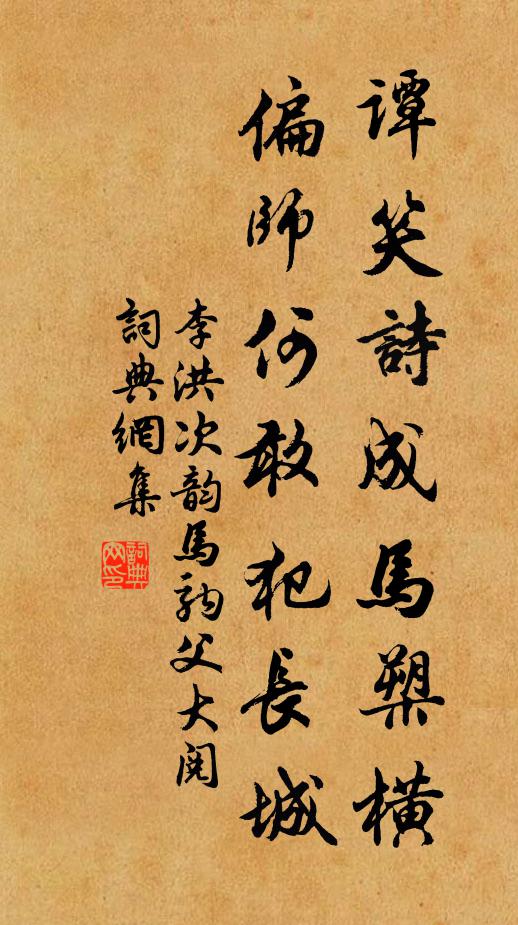 谭笑詩成馬槊橫
偏師何敢犯長城
李洪次韵馬駒父大阅
詞典網集
詞典網印